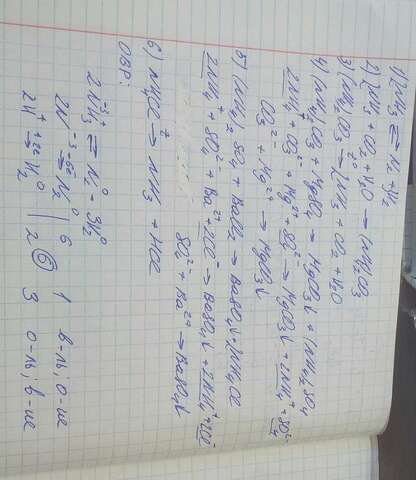 1) NH3 ⇄ N2 + H2
2) NH3 + CO2 + H2O → (NH4)2CO3
3) (NH4)2CO3 →t° NH3 + CO2 + H2O
4) (NH4)2CO3 + MgSO4 → MgCO3↓ + (NH4)2SO4
2NH4+ + CO3 2- + Mg2+ + SO4 2- → MgCO3↓ + 2NH4+ + SO4 2-
CO3 2- + Mg2+ → MgCO3↓
5) (NH4)2SO4 + BaCl2 → BaSO4↓ + 2NH4Cl
2NH4+ + SO4 2- + Ba2+ + 2Cl- → BaSO4↓ + 2NH4+ + 2Cl-
SO4 2- + Ba2+ → BaSO4↓
6) NH4Cl →t NH3 + HCl
ОВР:
2N-3H3+ ⇄ N2 0 + 3H2 0
2N-3 -6e→ N2 0 | 6 | 1 в-ль; о-ие
2H+ +2e→ H2 0 | 2 (6) 3 о-ль; в-ие